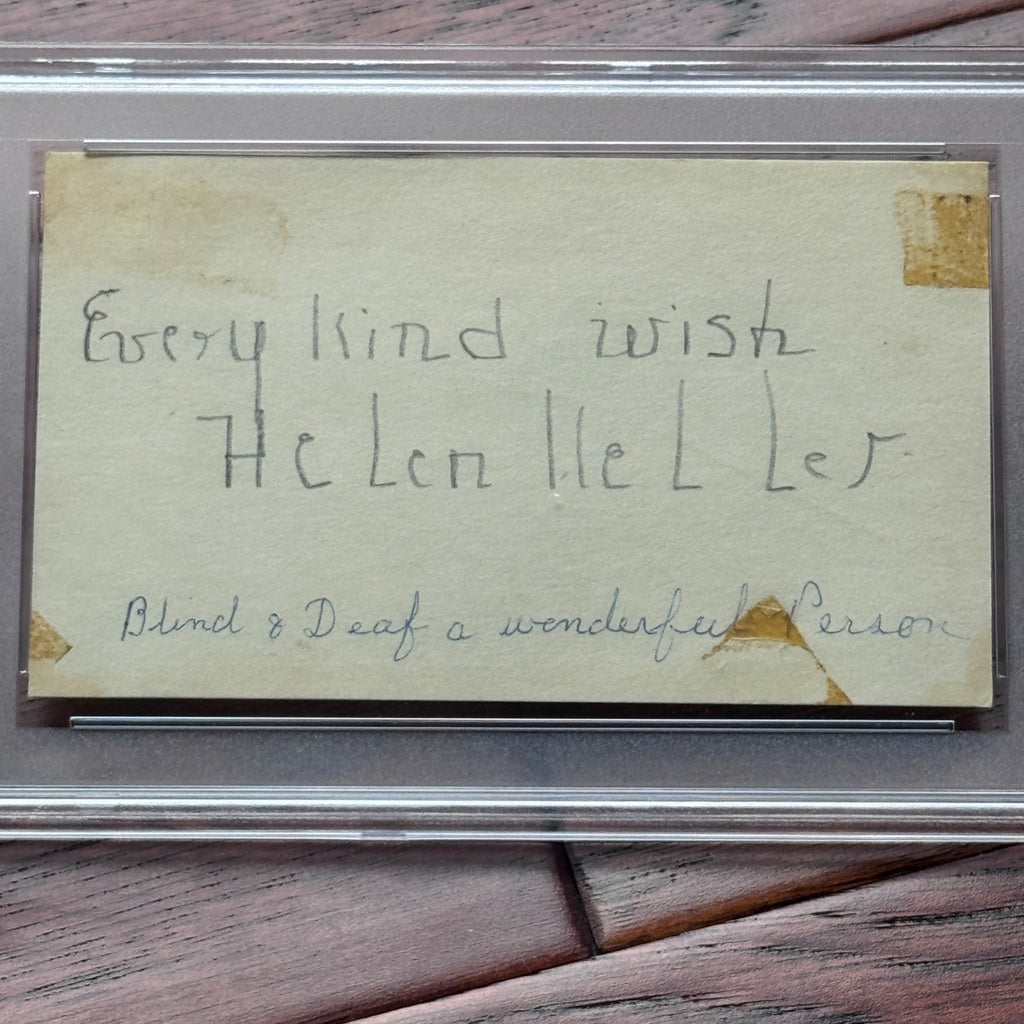 Every kind wish
Helen Keller
Blind & Deaf a wonderful Person